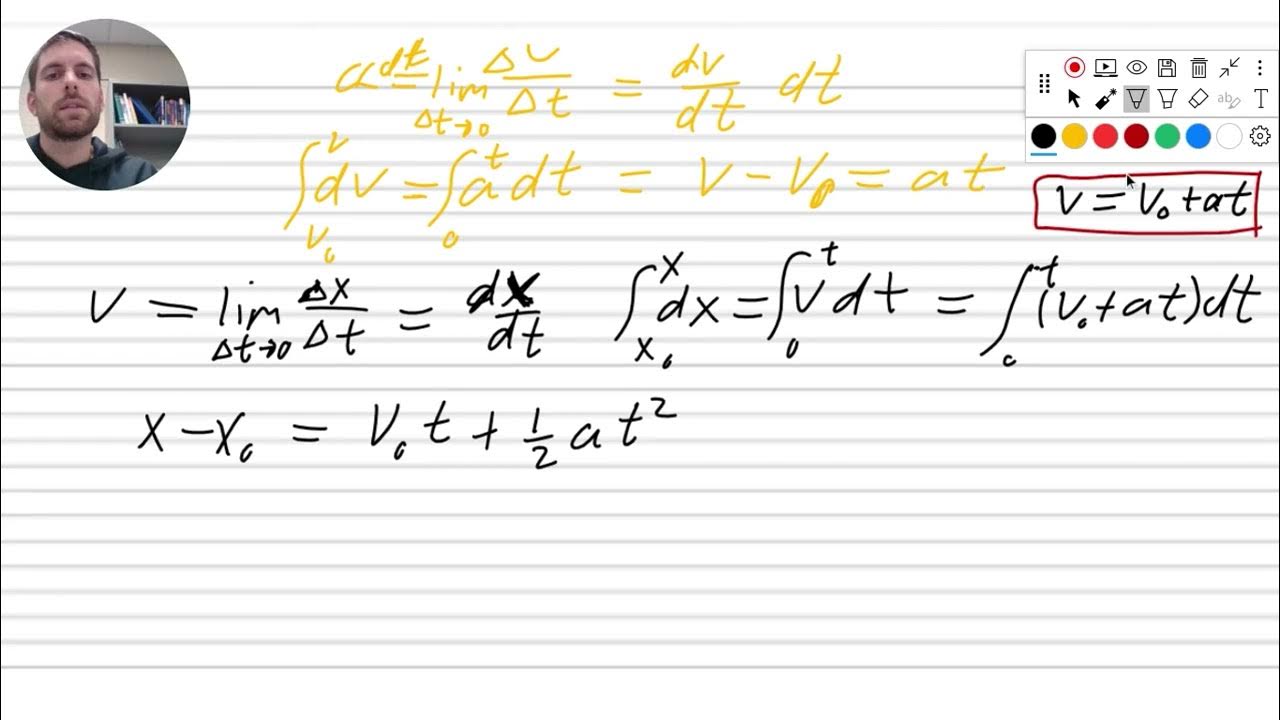 a dt = lim Δt→0 Δv/Δt = dv/dt dt
∫_{v₀}^{v} dv = ∫_{0}^{t} a dt = v − v₀ = at
v = v₀ + at
v = lim Δt→0 Δx/Δt = dx/dt ∫_{x₀}^{x} dx = ∫_{0}^{t} v dt = ∫_{0}^{t} (v₀ + at) dt
x − x₀ = v₀ t + 1/2 a t²